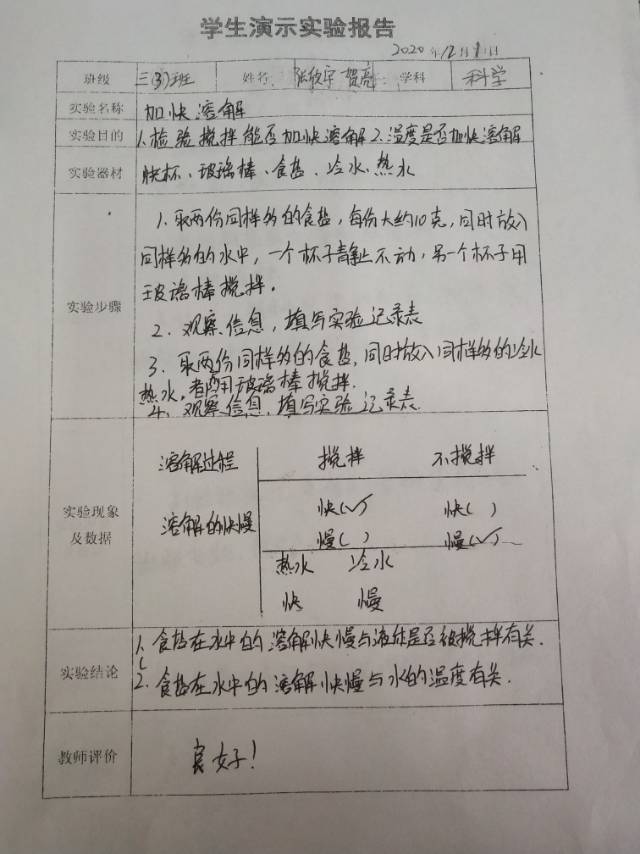 学生演示实验报告
2020年12月1日
班级 三(3)班 姓名 学科 科学
实验名称 加快溶解
实验目的 1.检验搅拌能否加快溶解2.温度是否加快溶解
实验器材 烧杯、玻璃棒、食盐、冷水、热水
实验步骤
1、取两份同样多的食盐，每份大约10克，同时放入
同样多的水中，一个杯子静止不动，另一个杯子用
玻璃棒搅拌。
2、观察信息，填写实验记录表
3、取两份同样多的食盐，同时放入同样多的冷水
热水，都用玻璃棒搅拌.
4、观察信息，填写实验记录表
实验现象
及数据
溶解过程 搅拌 不搅拌
溶解的快慢
快(√) 快( )
慢( ) 慢(√)
热水 冷水
快 慢
实验结论
1、食盐在水中的溶解快慢与液体是否被搅拌有关.
2、食盐在水中的溶解快慢与水的温度有关.
教师评价 良好!